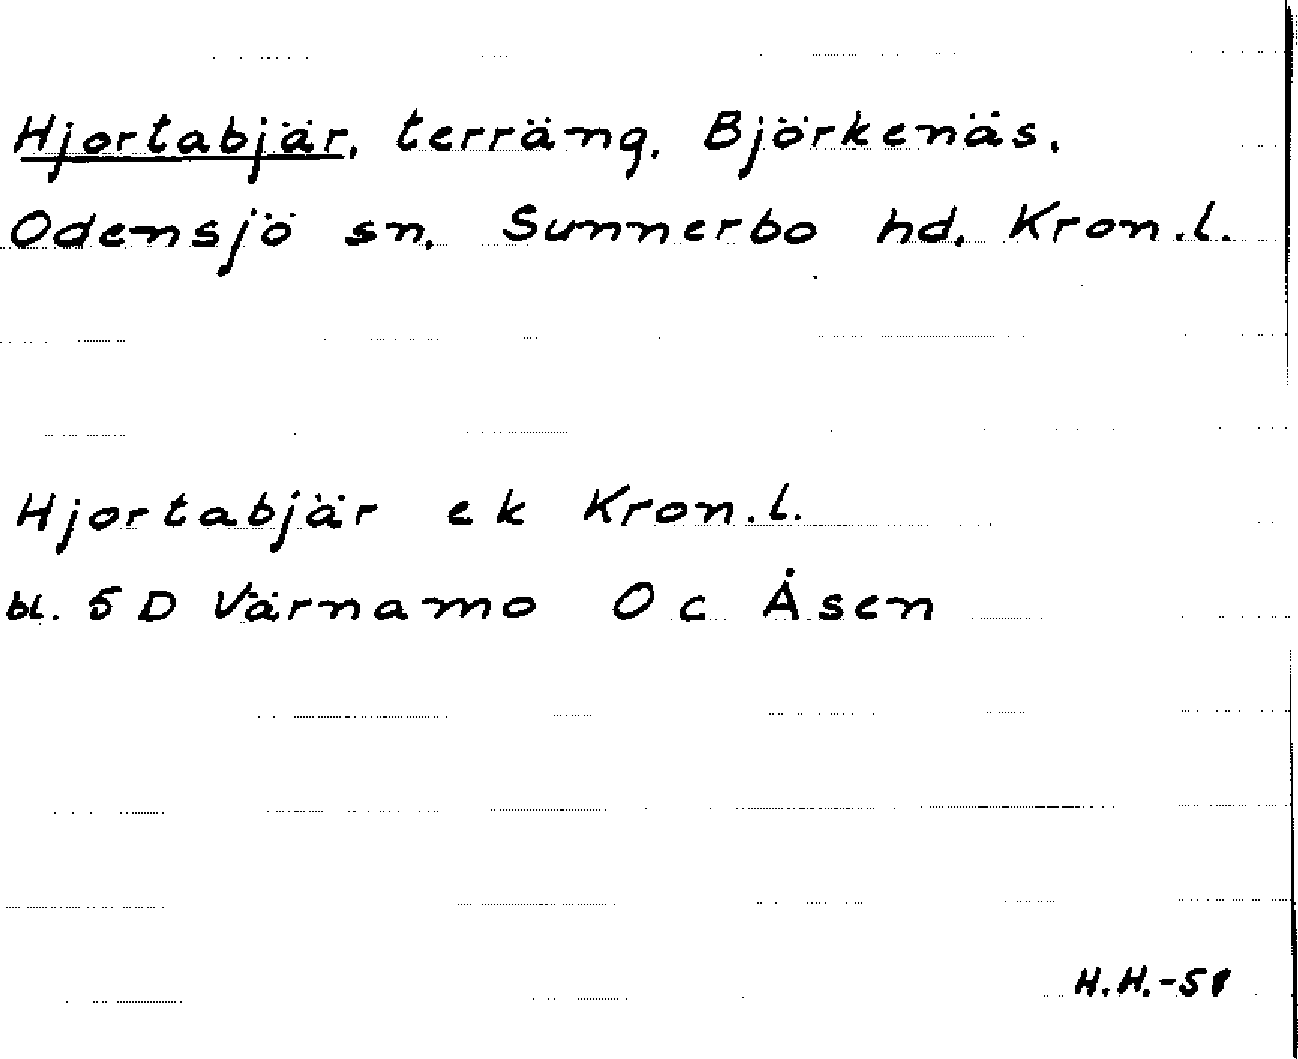 Hjortabjär, terräng, Björkenäs,
Odensjö sn, Sunnerbo hd, Kron.l.
Hjortabjär ek Kron.l.
bl. 5 D Värnamo O c Åsen
H.H.-58